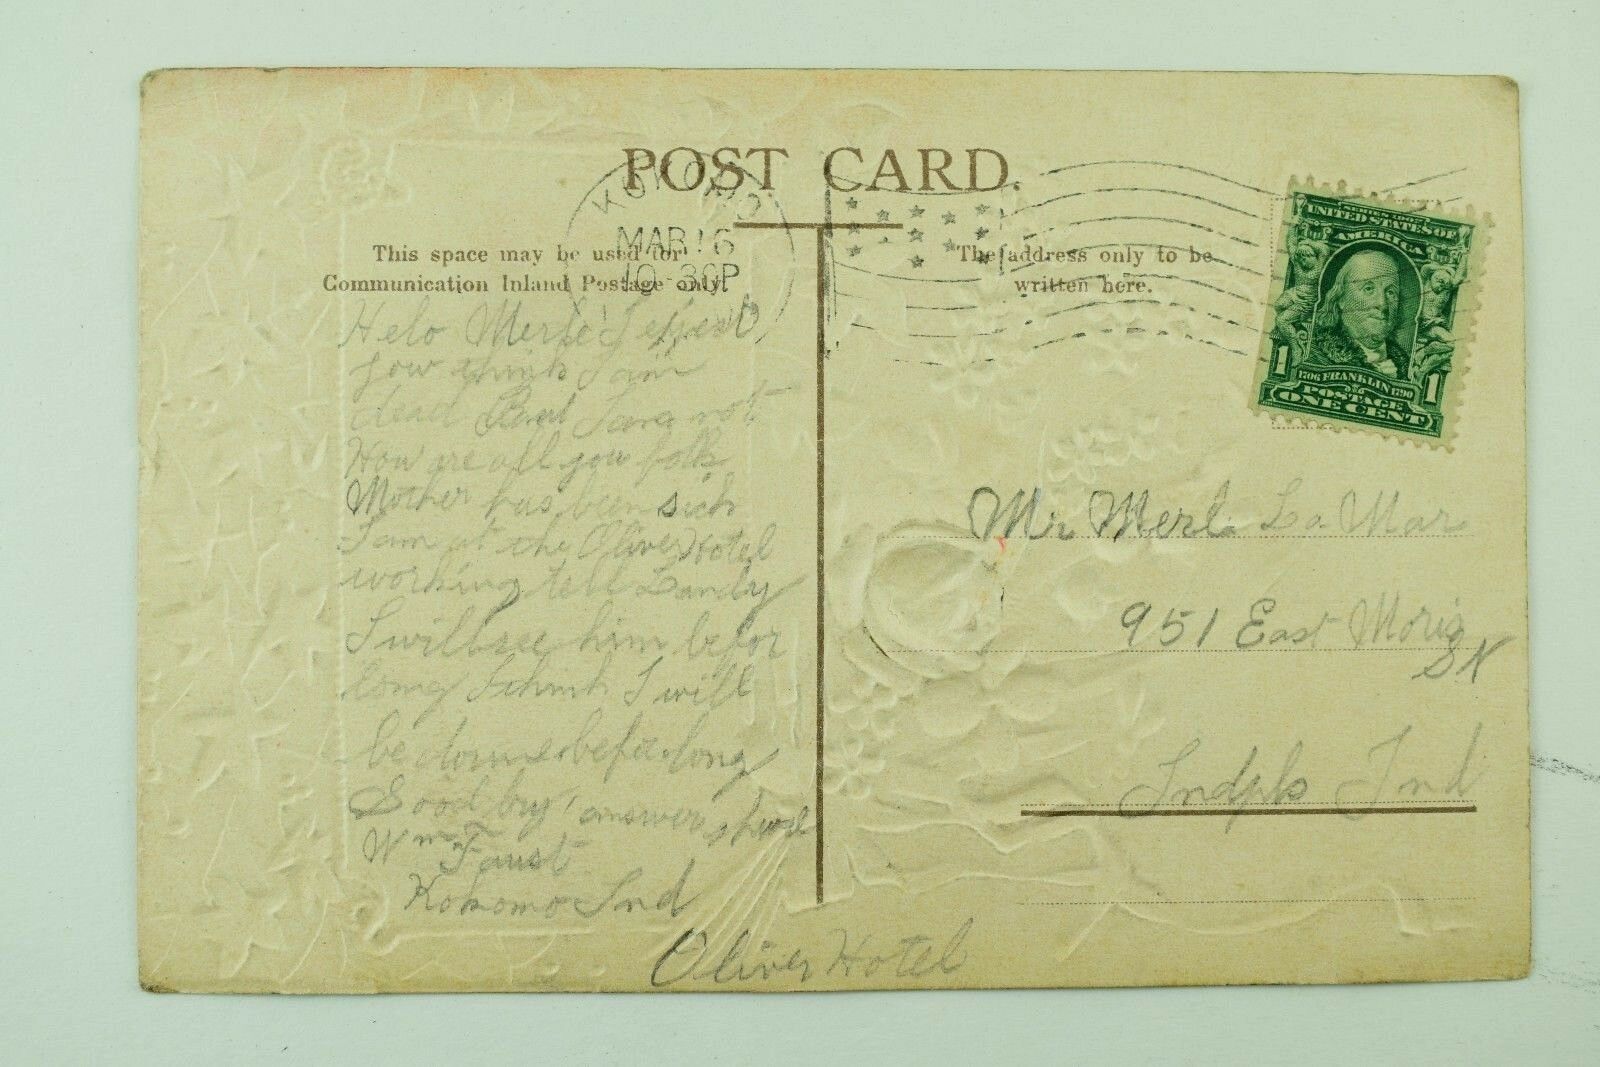 POST CARD.
KOKOMO
MAR 16
10-30P
IND
This space may be used for
Communication Inland Postage only.
The address only to be
written here.
SERIES 1902
UNITED STATES OF
AMERICA
1706 FRANKLIN 1790
POSTAGE
1 ONE CENT 1
Helo Merle I expect
you think I am
dead But I am not
How are all you folks
Mother has been sick
I am at the Oliver Hotel
working tell Landy
I will see him befor
long I think I will
be down befor long
Good by, answer
Wm Faust
Kokomo Ind
Oliver Hotel
Mr Merl La Mar
951 East Moris
St
Indpls Ind